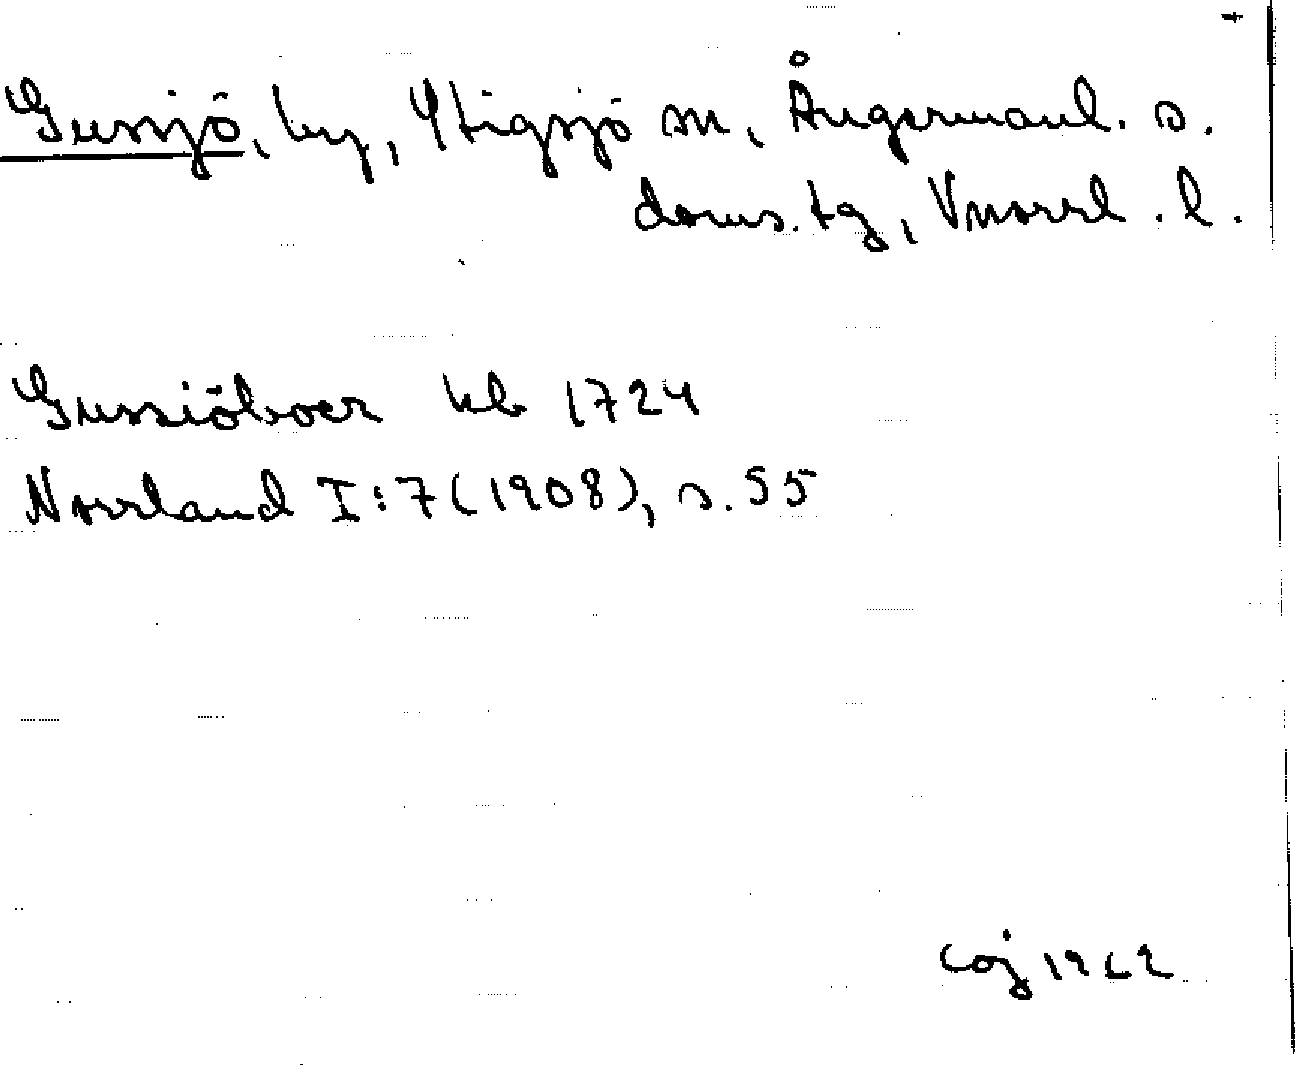 Gussjö, by, Stigsjö sn, Ångermanl. s.
doms. tg, Vnorrl. l.
Gussiöboer kb 1724
Norrland I:7 (1908), s. 55
coj 1962